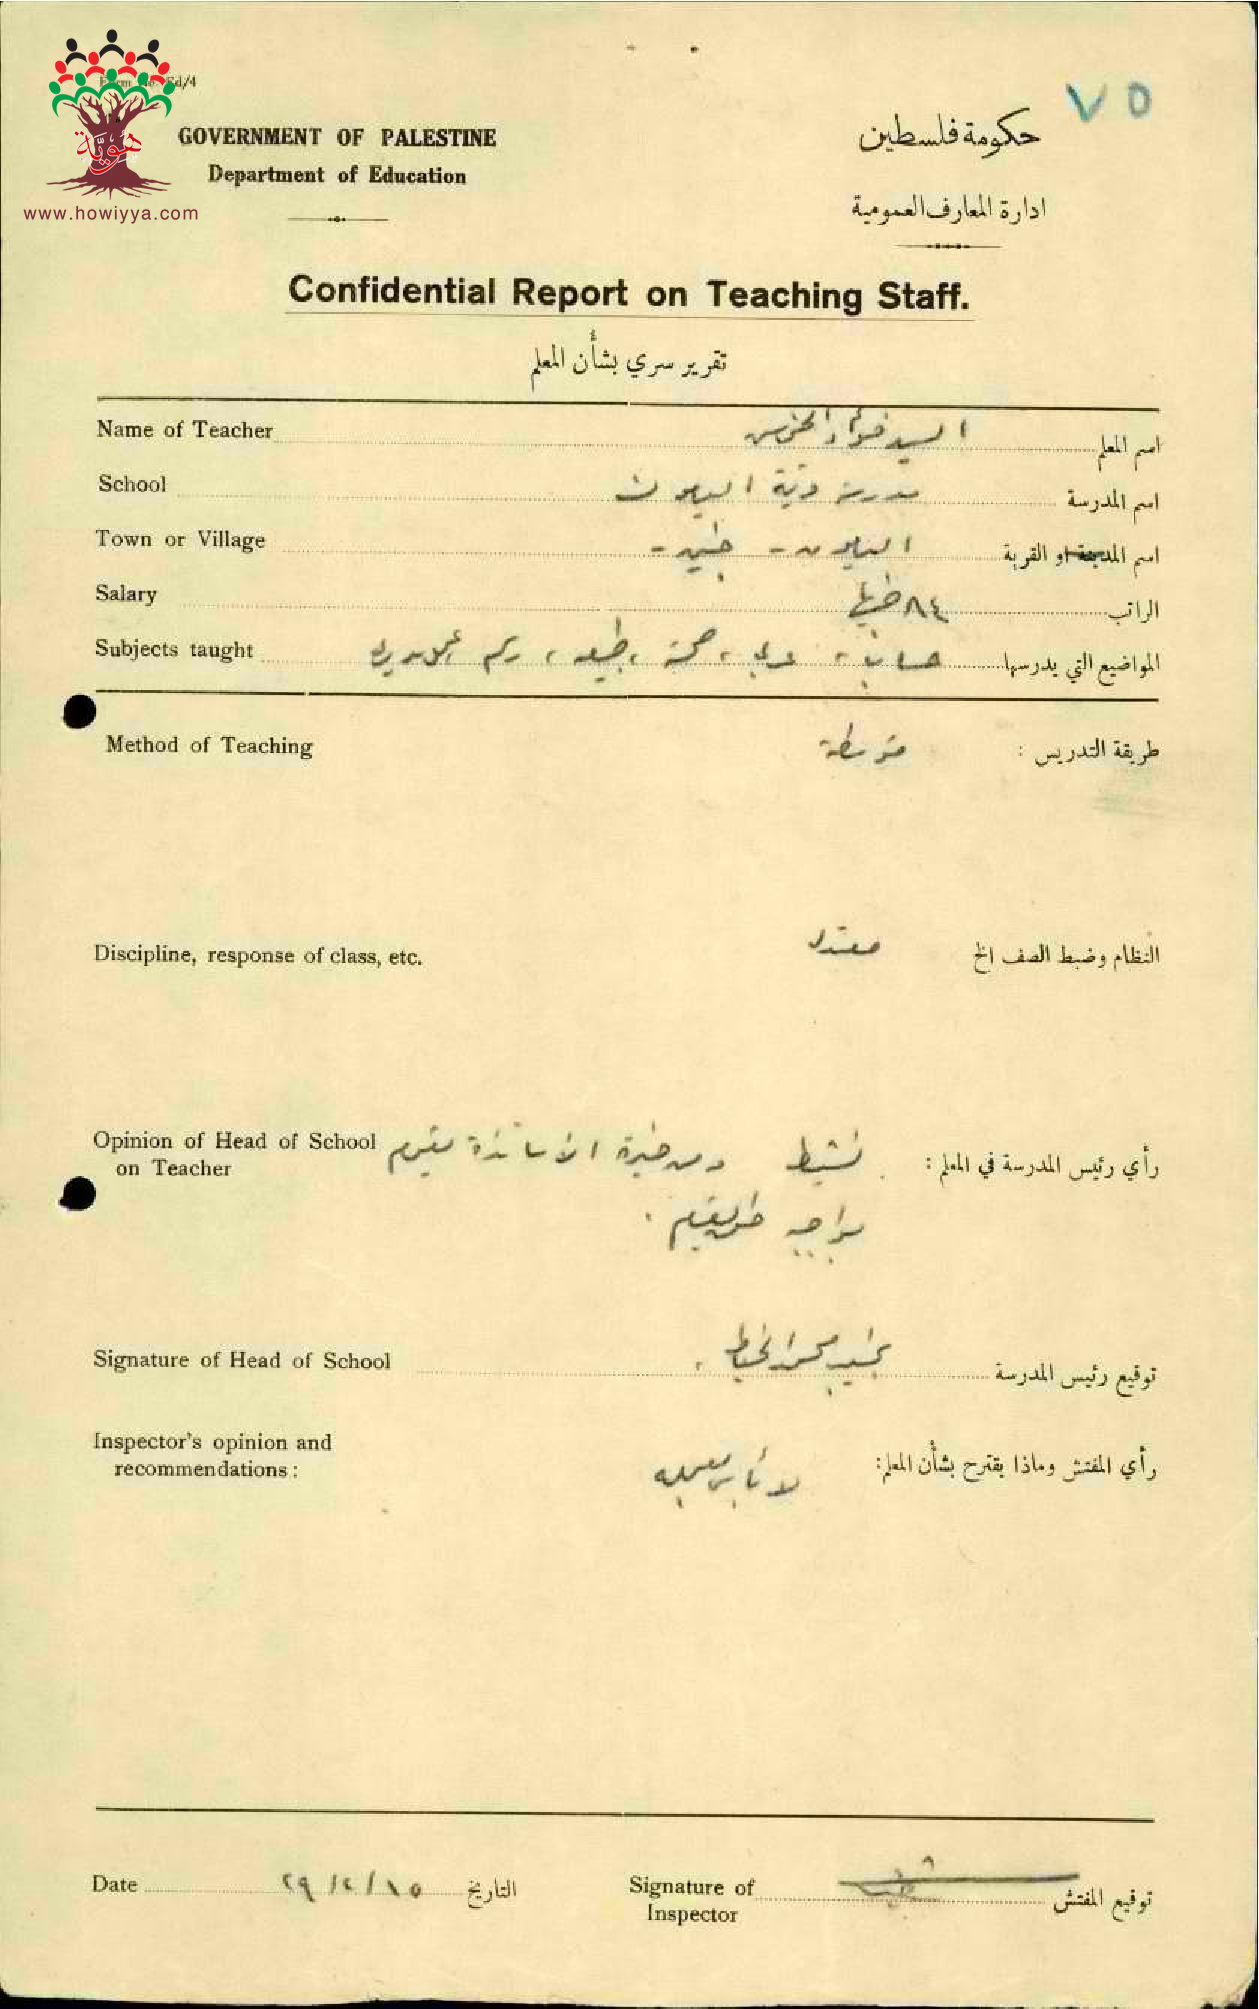 Form No. Ed/4
هويّة
www.howiyya.com
٧٥
GOVERNMENT OF PALESTINE
Department of Education
حكومة فلسطين
ادارة المعارف العمومية
Confidential Report on Teaching Staff.
تقرير سري بشأن المعلم
Name of Teacher السيد فؤاد اسم المعلم
School مدرسة قرية اليامون اسم المدرسة
Town or Village اليامون - جنين - اسم المدينة او القرية
Salary ٨٤ جنيها الراتب
Subjects taught حساب، عربي، صحة، طبيعة، رسم المواضيع التي يدرسها
Method of Teaching متوسطة طريقة التدريس :
Discipline, response of class, etc. معتدل النظام وضبط الصف الخ
Opinion of Head of School نشيط ومن خيرة الاساتذة يقوم رأي رئيس المدرسة في المعلم :
on Teacher
بواجبه خير القيام .
Signature of Head of School توقيع رئيس المدرسة
Inspector's opinion and
recommendations : لا بأس بعمله رأي المفتش وماذا يقترح بشأن المعلم:
Date التاريخ
Signature of توقيع المفتش
Inspector